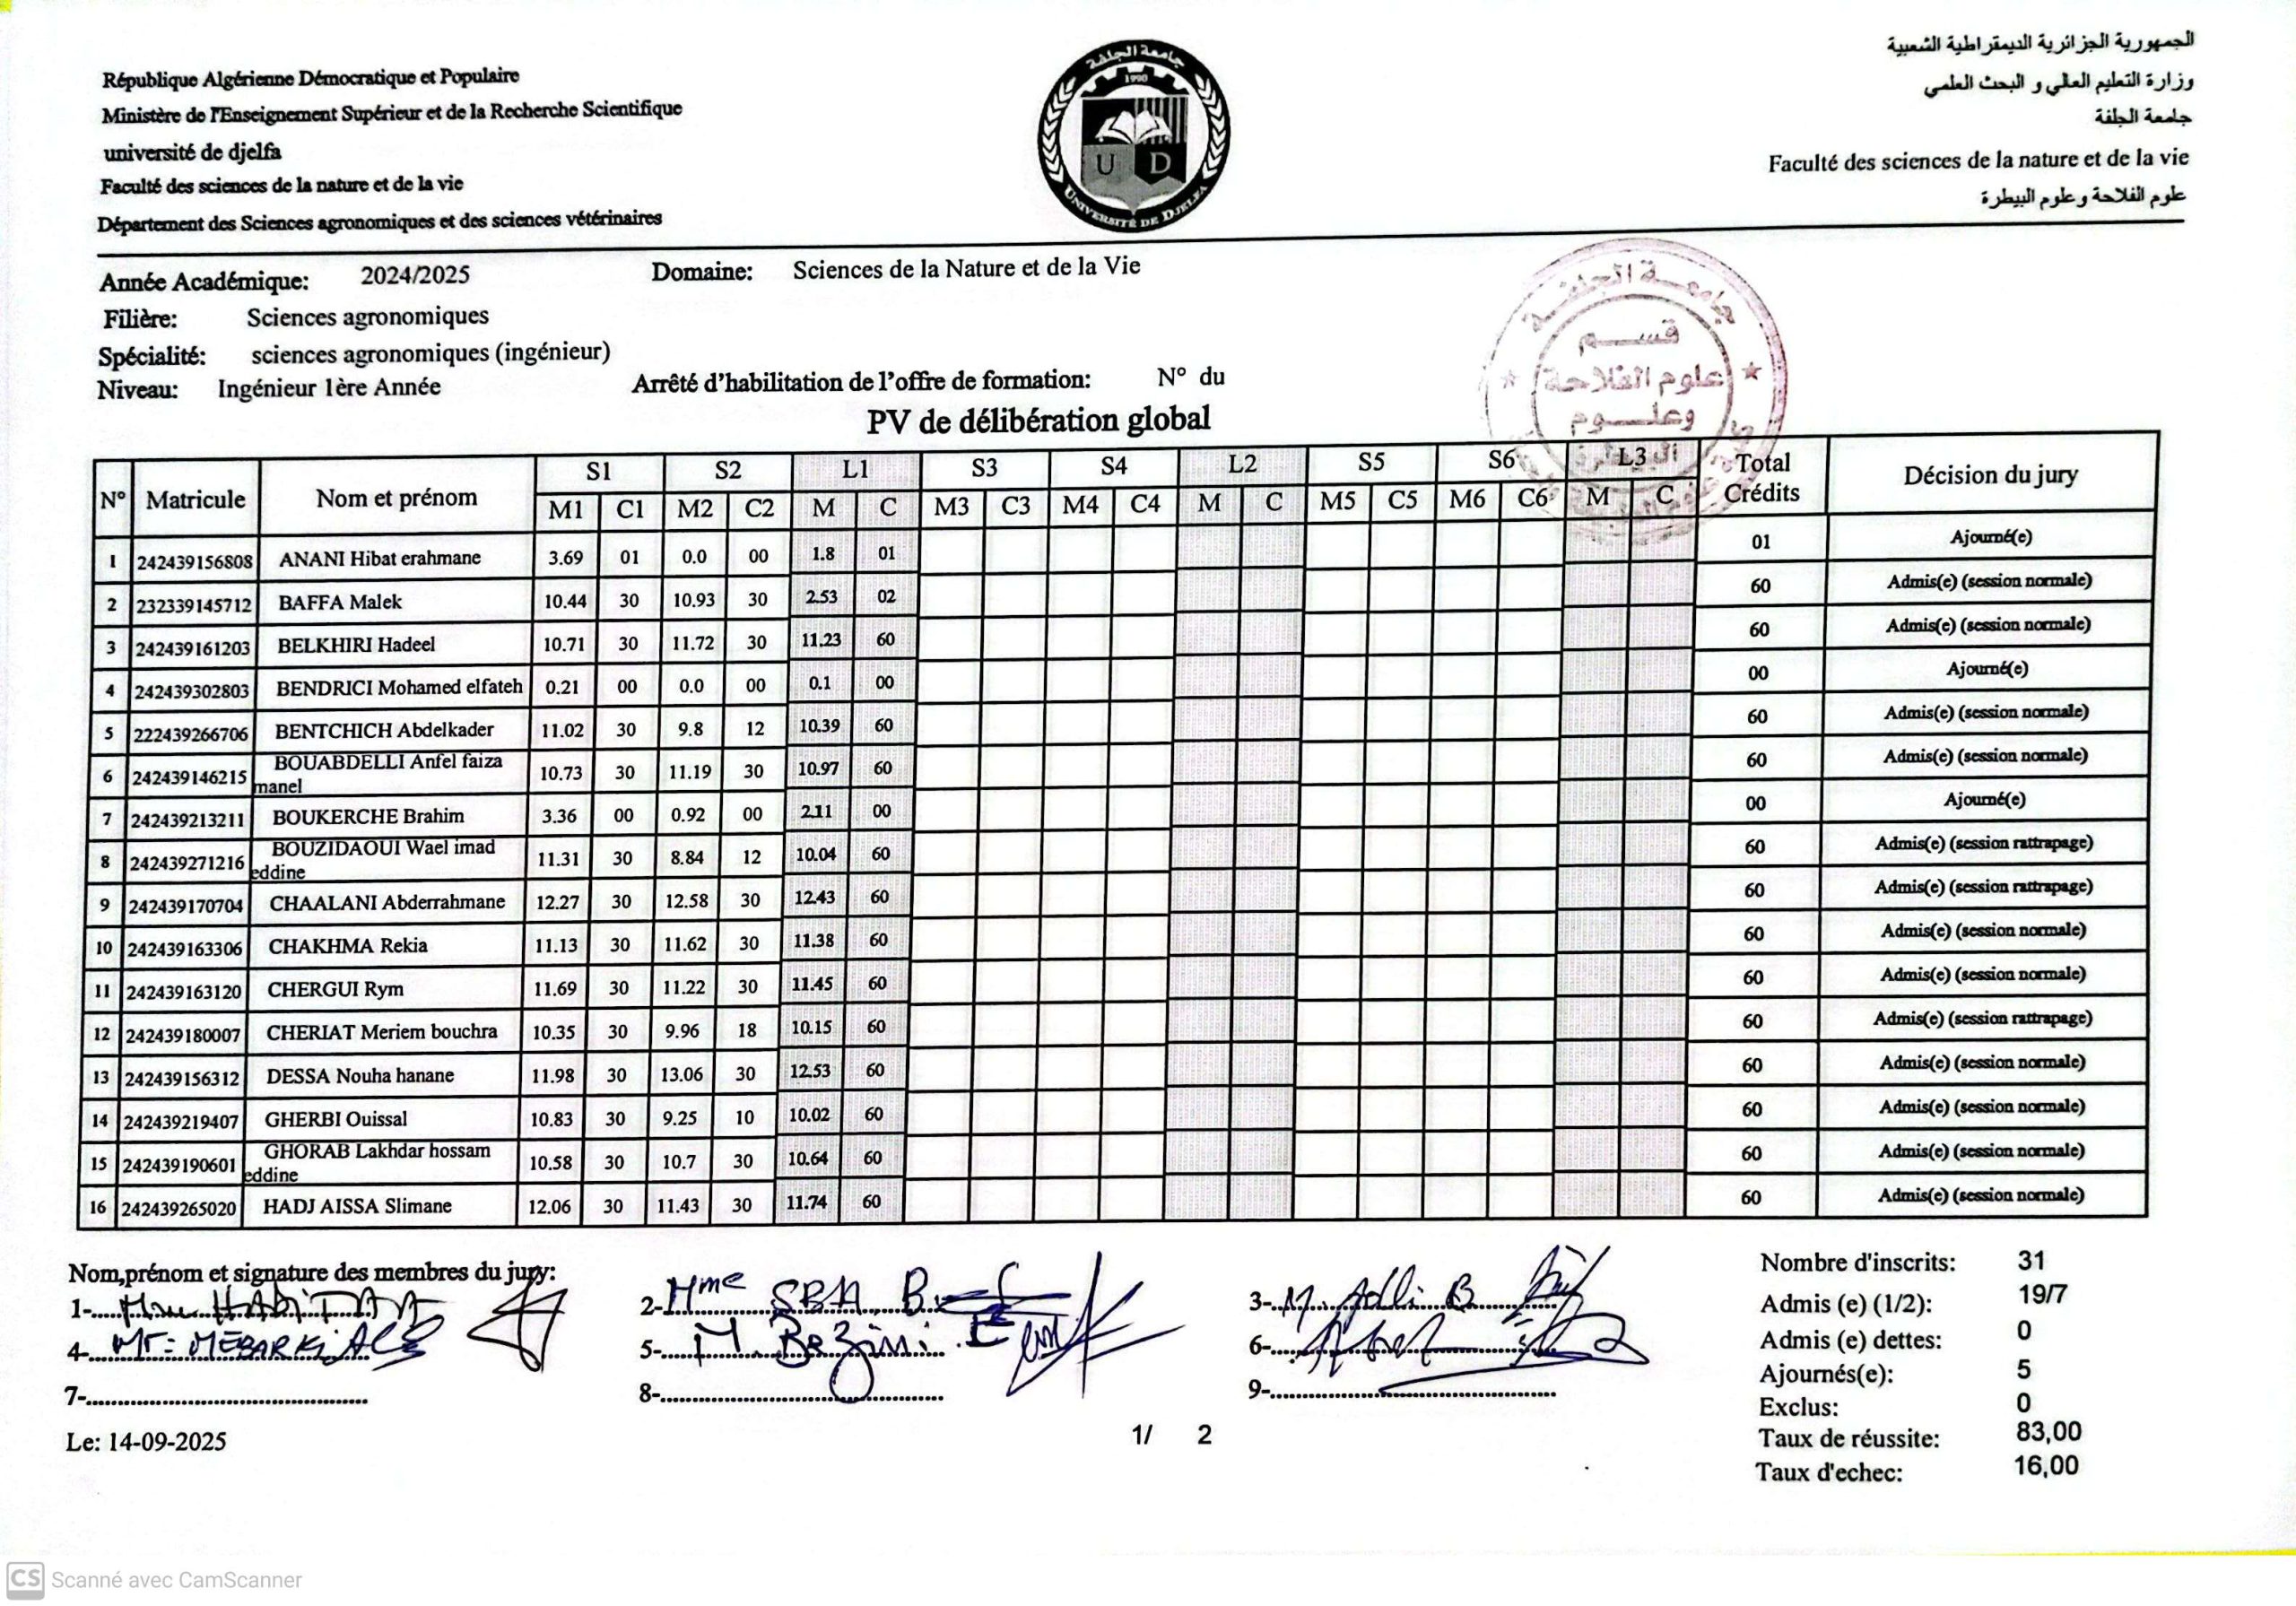 République Algérienne Démocratique et Populaire
Ministère de l'Enseignement Supérieur et de la Recherche Scientifique
université de djelfa
Faculté des sciences de la nature et de la vie
Département des Sciences agronomiques et des sciences vétérinaires
جامعة الجلفة
1990
U D
UNIVERSITÉ DE DJELFA
الجمهورية الجزائرية الديمقراطية الشعبية
وزارة التعليم العالي و البحث العلمي
جامعة الجلفة
Faculté des sciences de la nature et de la vie
علوم الفلاحة وعلوم البيطرة
Année Académique: 2024/2025 Domaine: Sciences de la Nature et de la Vie
Filière: Sciences agronomiques
Spécialité: sciences agronomiques (ingénieur)
Niveau: Ingénieur 1ère Année Arrêté d'habilitation de l'offre de formation: N° du
جامعة الجلفة
قسم
علوم الفلاحة
وعلوم
البيطرة
PV de délibération global
N° Matricule Nom et prénom S1 S2 L1 S3 S4 L2 S5 S6 L3 Total Crédits Décision du jury
M1 C1 M2 C2 M C M3 C3 M4 C4 M C M5 C5 M6 C6 M C
1 242439156808 ANANI Hibat erahmane 3.69 01 0.0 00 1.8 01 01 Ajourné(e)
2 232339145712 BAFFA Malek 10.44 30 10.93 30 2.53 02 60 Admis(e) (session normale)
3 242439161203 BELKHIRI Hadeel 10.71 30 11.72 30 11.23 60 60 Admis(e) (session normale)
4 242439302803 BENDRICI Mohamed elfateh 0.21 00 0.0 00 0.1 00 00 Ajourné(e)
5 222439266706 BENTCHICH Abdelkader 11.02 30 9.8 12 10.39 60 60 Admis(e) (session normale)
6 242439146215 BOUABDELLI Anfel faiza manel 10.73 30 11.19 30 10.97 60 60 Admis(e) (session normale)
7 242439213211 BOUKERCHE Brahim 3.36 00 0.92 00 2.11 00 00 Ajourné(e)
8 242439271216 BOUZIDAOUI Wael imad eddine 11.31 30 8.84 12 10.04 60 60 Admis(e) (session rattrapage)
9 242439170704 CHAALANI Abderrahmane 12.27 30 12.58 30 12.43 60 60 Admis(e) (session rattrapage)
10 242439163306 CHAKHMA Rekia 11.13 30 11.62 30 11.38 60 60 Admis(e) (session normale)
11 242439163120 CHERGUI Rym 11.69 30 11.22 30 11.45 60 60 Admis(e) (session normale)
12 242439180007 CHERIAT Meriem bouchra 10.35 30 9.96 18 10.15 60 60 Admis(e) (session rattrapage)
13 242439156312 DESSA Nouha hanane 11.98 30 13.06 30 12.53 60 60 Admis(e) (session normale)
14 242439219407 GHERBI Ouissal 10.83 30 9.25 10 10.02 60 60 Admis(e) (session normale)
15 242439190601 GHORAB Lakhdar hossam eddine 10.58 30 10.7 30 10.64 60 60 Admis(e) (session normale)
16 242439265020 HADJ AISSA Slimane 12.06 30 11.43 30 11.74 60 60 Admis(e) (session normale)
Nom,prénom et signature des membres du jury:
1- 2- Mme SBA B 3- M.
4- Mr: MEBARKI 5- M. 6-
7- 8- 9-
Le: 14-09-2025
1/ 2
Nombre d'inscrits: 31
Admis (e) (1/2): 19/7
Admis (e) dettes: 0
Ajournés(e): 5
Exclus: 0
Taux de réussite: 83,00
Taux d'echec: 16,00
CS Scanné avec CamScanner